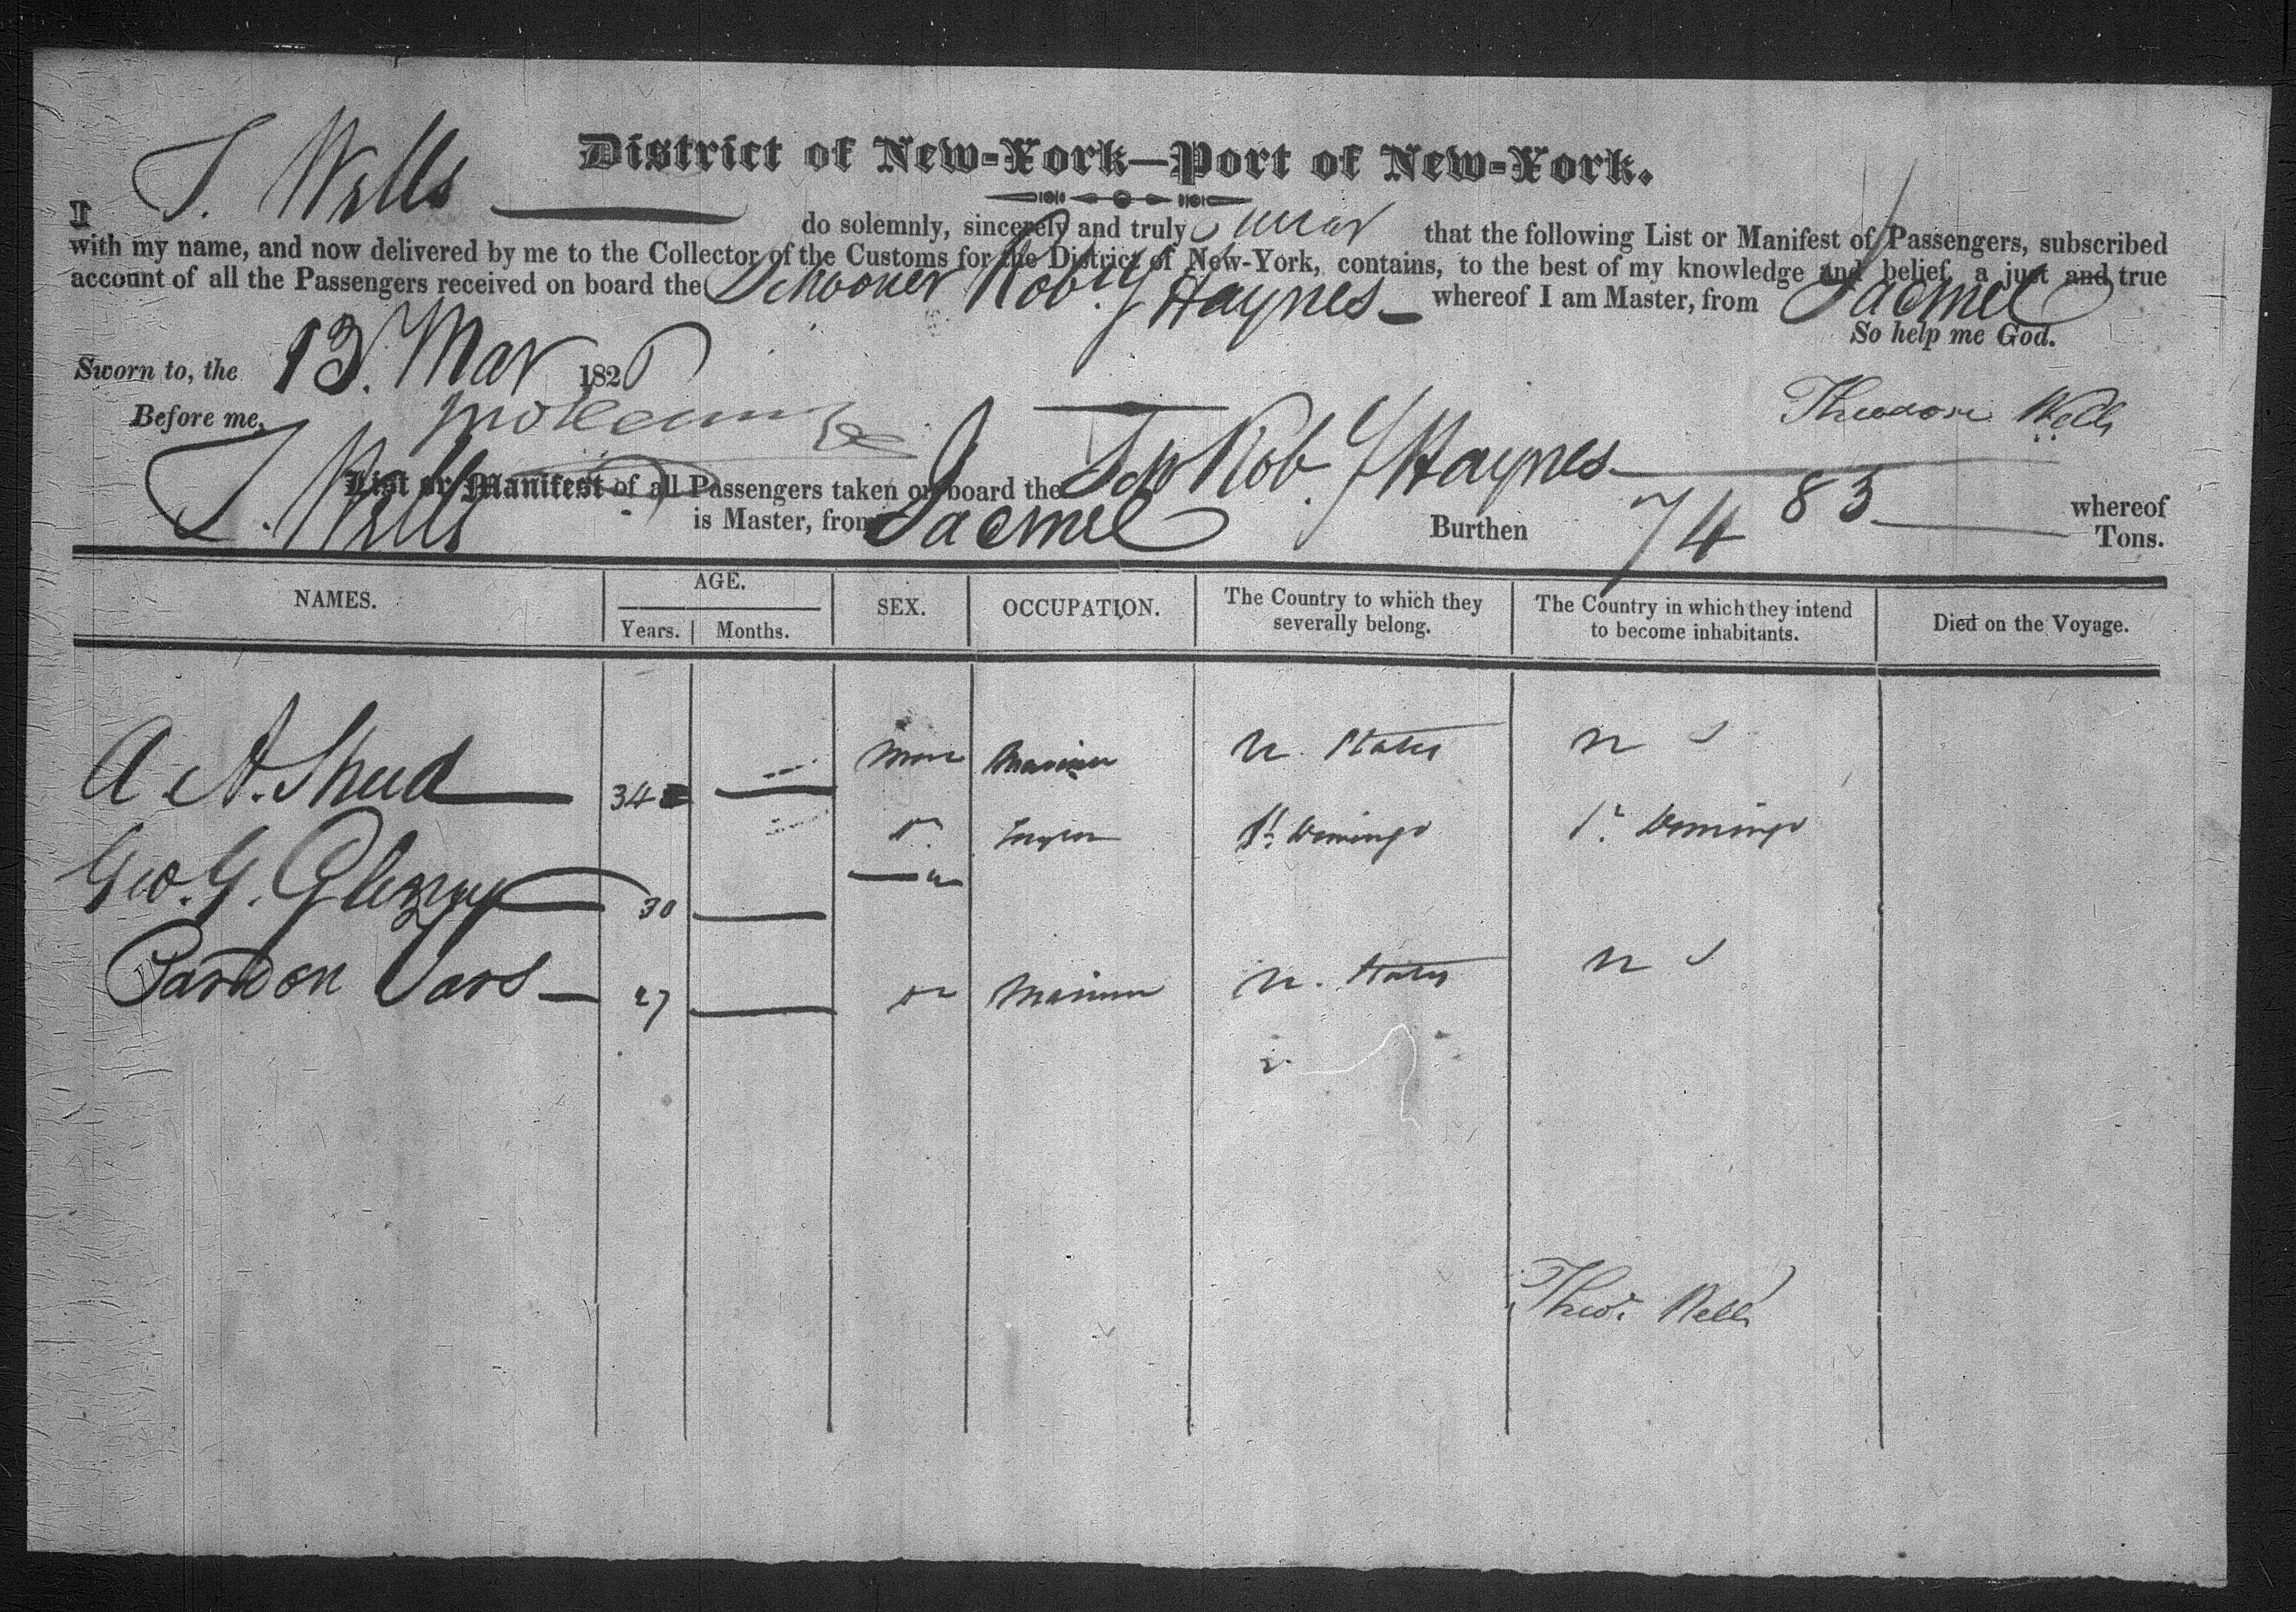 District of New-York—Port of New-York.
I T. Wells do solemnly, sincerely and truly swear that the following List or Manifest of Passengers, subscribed
with my name, and now delivered by me to the Collector of the Customs for the District of New-York, contains, to the best of my knowledge and belief, a just and true
account of all the Passengers received on board the Schooner Rob. Y Haynes whereof I am Master, from Jacmel
So help me God.
Sworn to, the 13. Mar 182
Before me, Theodore Wells
List or Manifest of all Passengers taken on board the Sch Rob. Y Haynes whereof
T. Wells is Master, from Jacmel Burthen 74 83 Tons.
NAMES. AGE. SEX. OCCUPATION. The Country to which they severally belong. The Country in which they intend to become inhabitants. Died on the Voyage.
Years. Months.
A. A. Shed 34 Mariner U. States U S
Geo. G. 30 St. Domingo St. Domingo
Pardon Vars 27 Do Mariner U. States U S
Theo. Wells